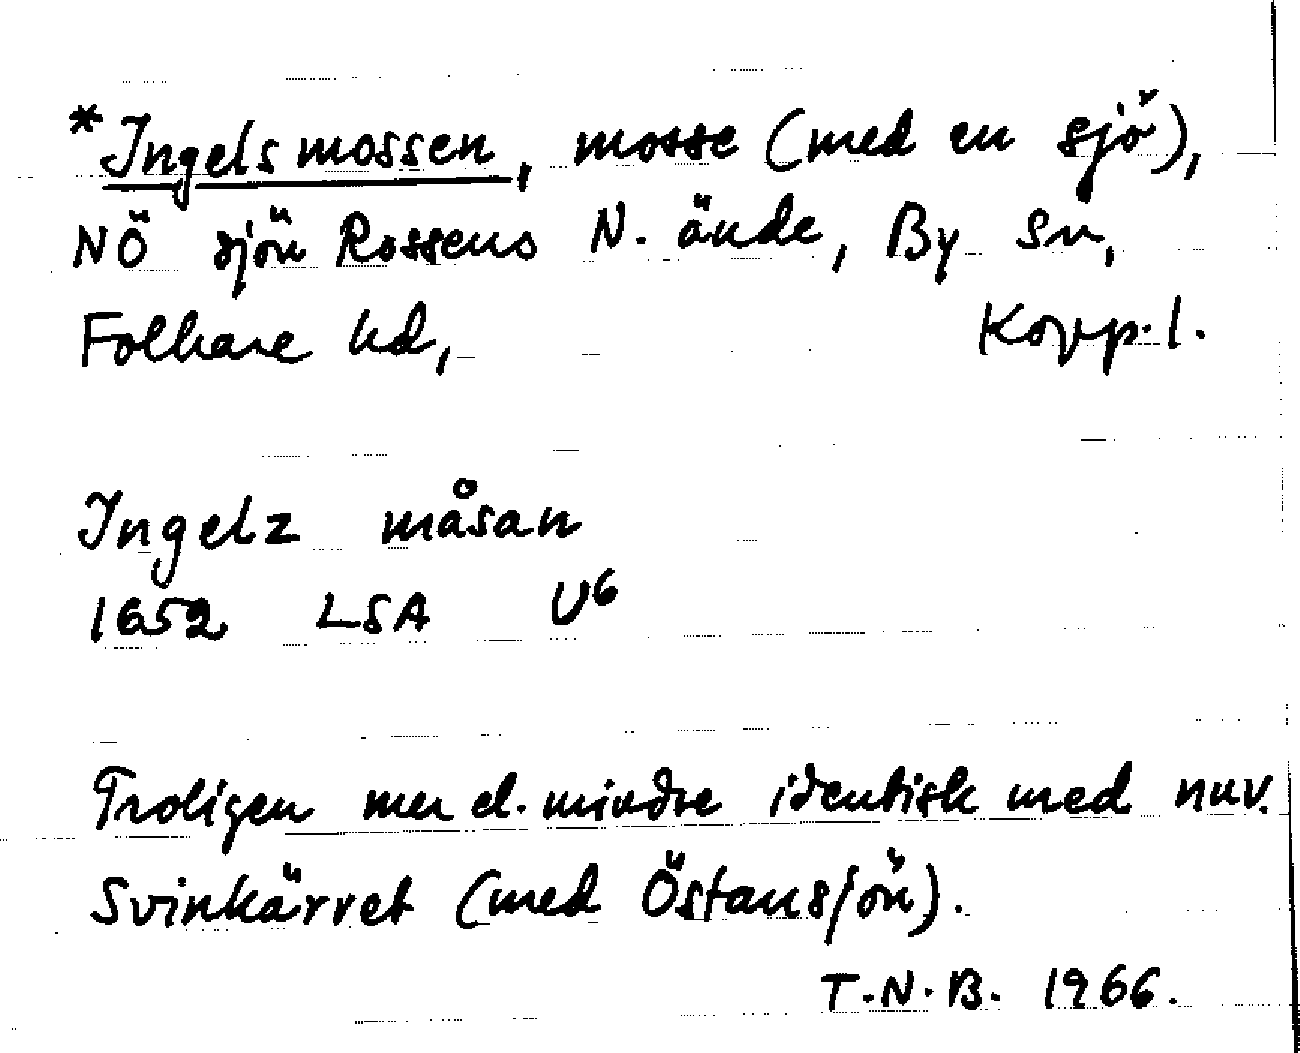 *Ingelsmossen, mosse (med en sjö),
NÖ sjön Rossens N. ände, By sn,
Folkare hd, Kopp. l.
Ingelz måsan
1652 LSA U6
Troligen mer el. mindre identisk med nuv.
Svinkärret (med Östansjön).
T.N.B. 1966.